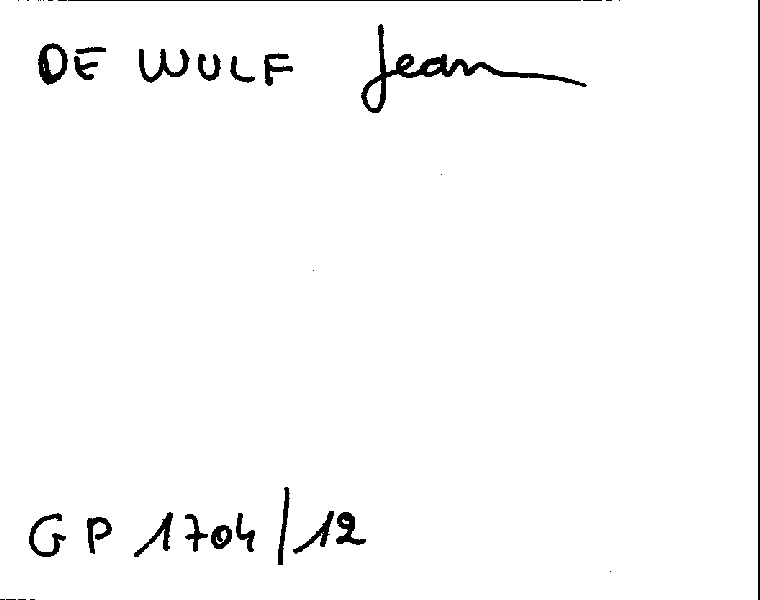 DE WULF Jean
GP 1704/12